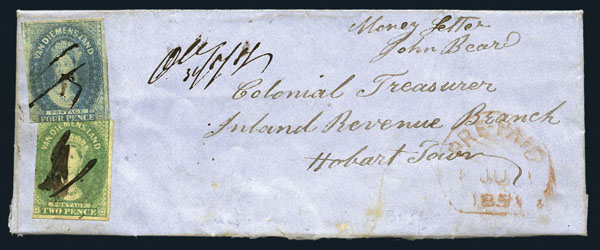 VAN DIEMENS LAND
POSTAGE
FOUR PENCE
VAN DIEMENS LAND
POSTAGE
TWO PENCE
Money Letter
John Beard
Colonial Treasurer
Inland Revenue Branch
Hobart Town
PREPAID
JU
185